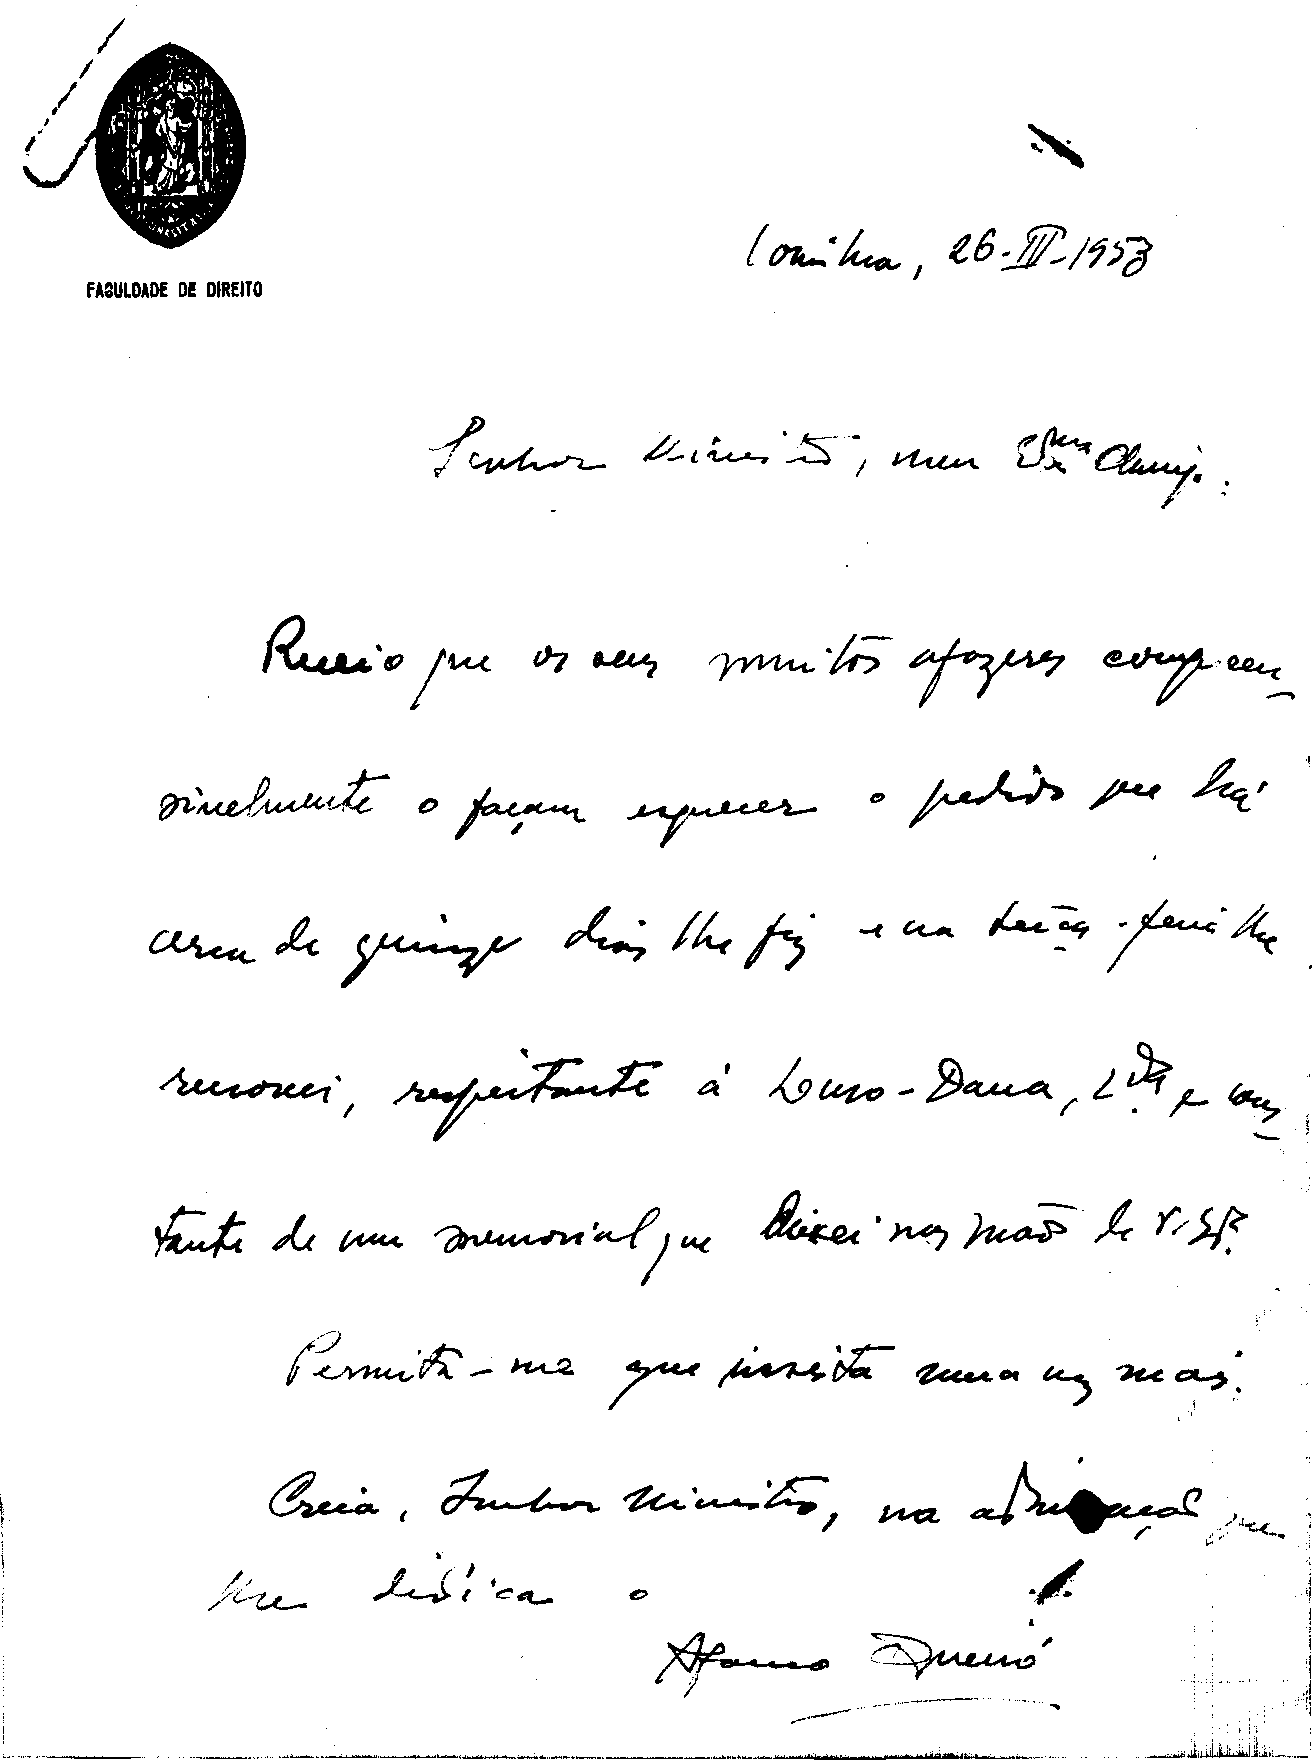 FACULDADE DE DIREITO
Coimbra, 26-III-1953
Senhor Ministro, meu Exmo Amigo:
Receio que os seus muitos afazeres compreen-
sivelmente o façam esquecer o pedido que há
cerca de quinze dias lhe fiz e na terça-feira lhe
renovei, respeitante à Louso-Dana, Lda e cons-
tante de um memorial que deixei nas mãos de V. Exª.
Permita-me que insista uma vez mais.
Creia, Senhor Ministro, na admiração que
lhe dedica o
Afonso Queiró